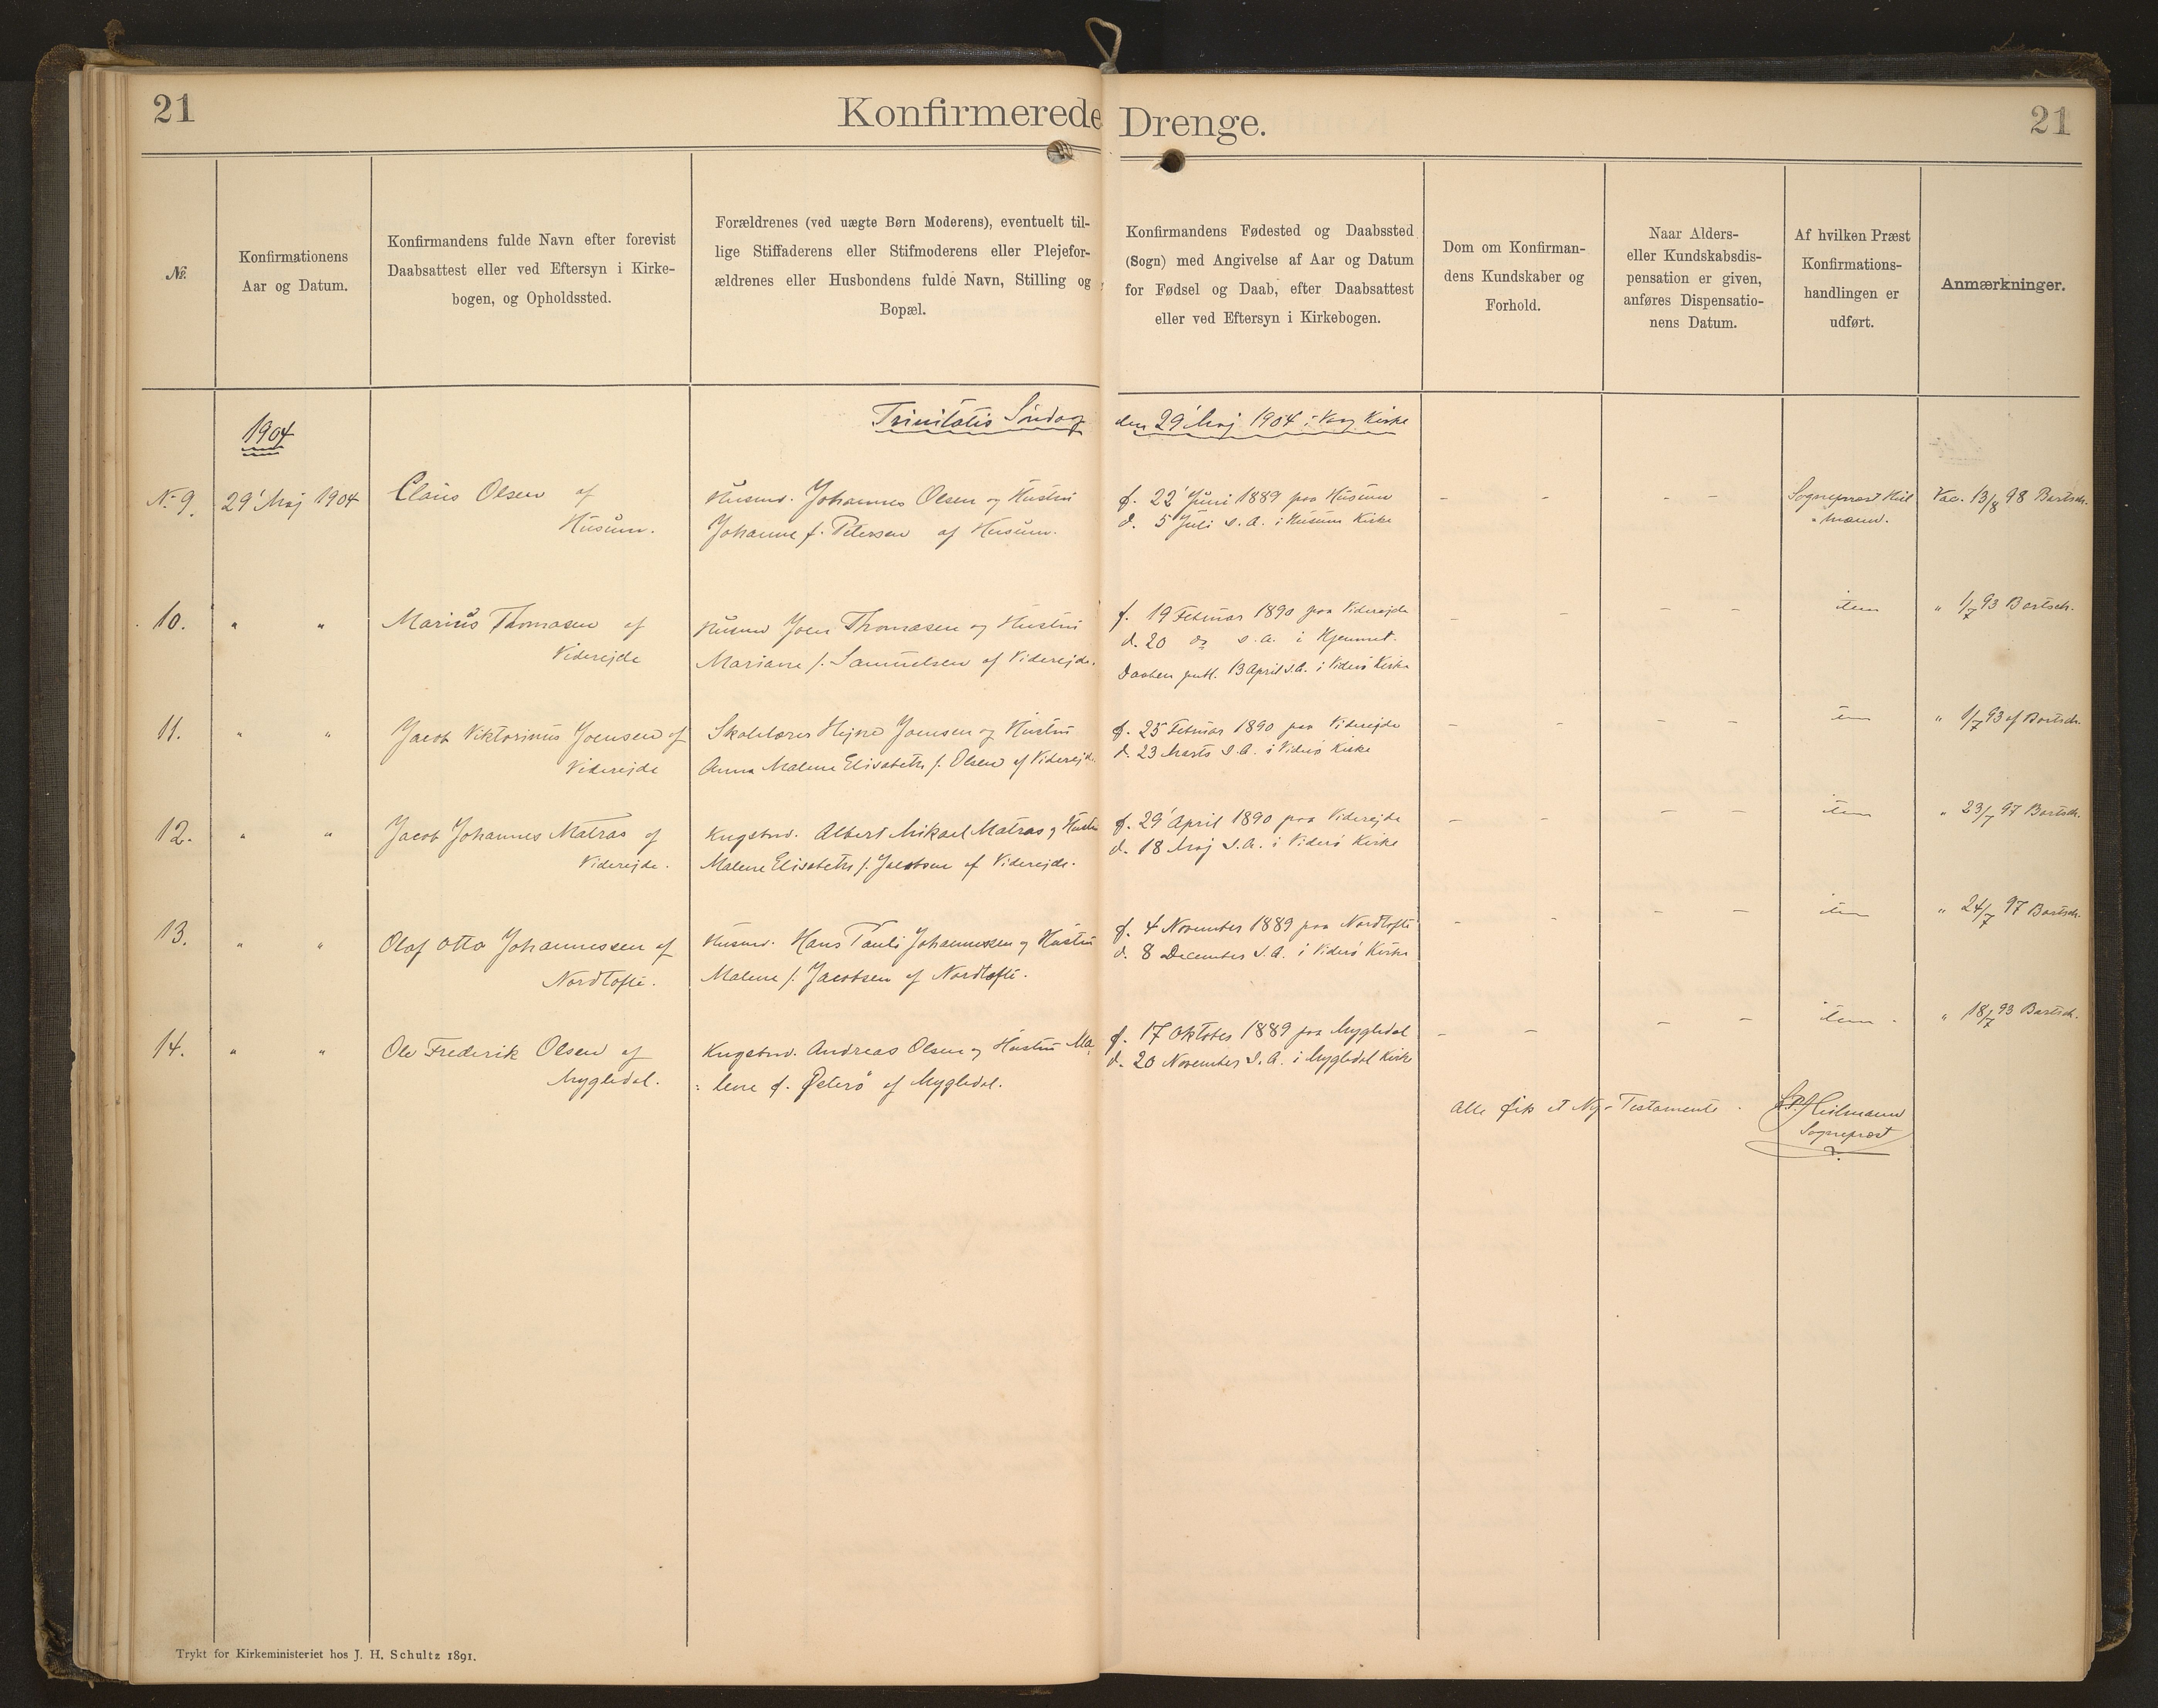 21
Konfirmerede Drenge.
21
№
Konfirmationens
Aar og Datum.
Konfirmandens fulde Navn efter forevist
Daabsattest eller ved Eftersyn i Kirke-
bogen, og Opholdssted.
Forældrenes (ved uægte Børn Moderens), eventuelt til-
lige Stiffaderens eller Stifmoderens eller Plejefor-
ældrenes eller Husbondens fulde Navn, Stilling og
Bopæl.
Konfirmandens Fødested og Daabssted
(Sogn) med Angivelse af Aar og Datum
for Fødsel og Daab, efter Daabsattest
eller ved Eftersyn i Kirkebogen.
Dom om Konfirman-
dens Kundskaber og
Forhold.
Naar Alders-
eller Kundskabsdis-
pensation er given,
anføres Dispensatio-
nens Datum.
Af hvilken Præst
Konfirmations-
handlingen er
udført.
Anmærkninger.
1904
Trinitatis Søndag den 29' Maj 1904 i Kirke
No 9.
29' Maj 1904
Claus Olsen af
Husum.
Husmd. Johannes Olsen og Hustru
Johanne f. Petersen af Husum.
f. 22' Juni 1889 paa Husum
d. 5' Juli s. A. i Husum Kirke
- - - -
Sognepræst Heil
mann.
Vac. 13/8 98 Bartsch.
10.
" "
Marius Thomasen af
Viderejde
Husmd Joen Thomasen og Hustru
Mariane f. Samuelsen af Viderejde.
f. 19 Februar 1890 paa Viderejde
d. 20 do s. A. i Hjemmet.
Daaben publ. 13 April s.A. i Viderø Kirke
- - - -
item
" 1/7 93 Bartsch.
11.
" "
Jacob Viktorinus Joensen af
Viderejde
Skolelærer Hejne Joensen og Hustru
Anna Malene Elisabeth f. Olsen af Viderejde
f. 25 Februar 1890 paa Viderejde
d. 23 Marts s.A. i Viderø Kirke
- - - -
item
" 1/7 93 af Bartsch.
12.
" "
Jacob Johannes Matras af
Viderejde.
Kngsbmd. Albert Mikael Matras og Hustru
Malene Elisabeth f. Jacobsen af Viderejde.
f. 29' April 1890 paa Viderejde
d. 18 Maj s.A. i Viderø Kirke
- - - -
item
" 23/7 97 Bartsch.
13.
" "
Olaf Otto Johannessen af
Nordtofte.
Husmd. Hans Pauli Johannesen og Hustru
Malene f. Jacobsen af Nordtofte.
f. 4 November 1889 paa Nordtofte
d. 8 December s.A. i Viderø Kirke
- - - -
item
" 24/7 97 Bartsch.
14.
" "
Ole Frederik Olsen af
Mygledal.
Kngsbmd. Andreas Olsen og Hustru Ma
lene f. Østerø af Mygledal.
f. 17 Oktober 1889 paa Mygledal
d. 20 November s.A. i Mygledal Kirke
- - - -
item.
" 18/7 93 Bartsch.
Alle fik et Ny-Testamente.
Heilmann
Sognepræst
Trykt for Kirkeministeriet hos J. H. Schultz 1891.